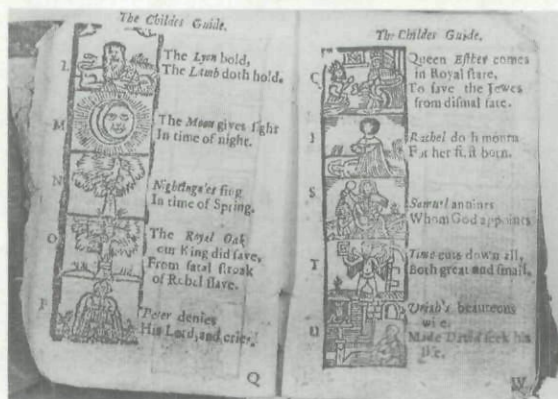 The Childes Guide.
L
The Lyon bold,
The Lamb doth hold.
M
The Moon gives light
In time of night.
N
Nightingales sing
In time of Spring.
O
The Royal Oak
our King did save,
From fatal stroak
of Rebel slave.
P
Peter denies
His Lord, and cries.
Q
The Childes Guide.
Q
Queen Esther comes
in Royal state,
To save the Jewes
from dismal fate.
Rachel doth mourn
For her first born.
S
Samuel annints
Whom God appoints
T
Time cuts down all,
Both great and small.
U
Uriah's beauteous
wife,
Made David seek his
life.
W